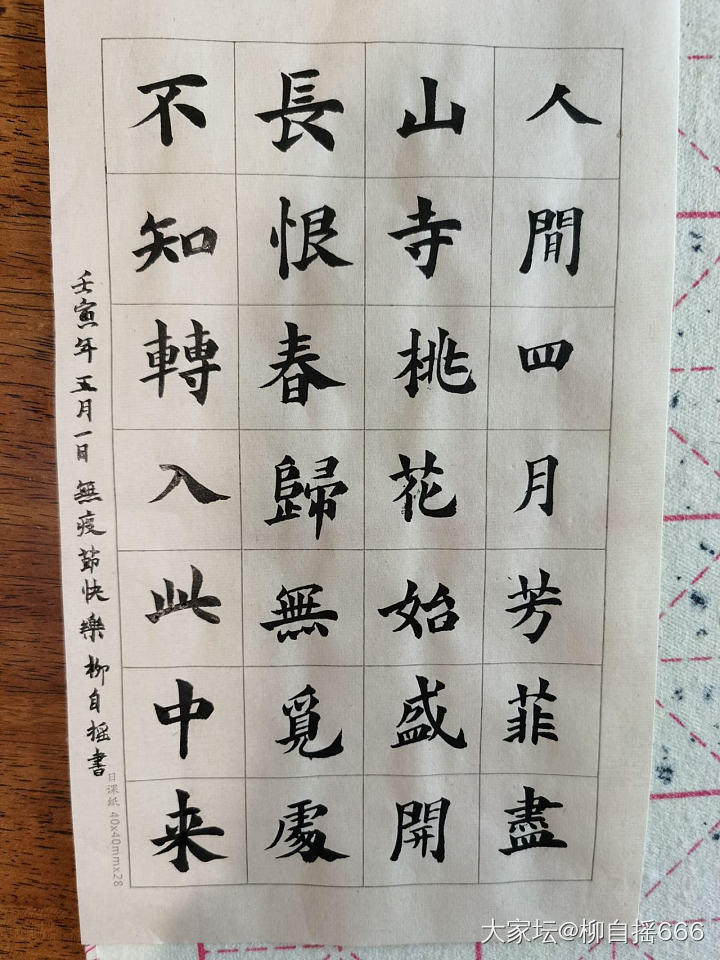 人閒四月芳菲盡
山寺桃花始盛開
長恨春歸無覓處
不知轉入此中来
壬寅年五月一日無疫節快樂柳自摇書
日课纸 40x40mmx28
大家坛@柳自摇666